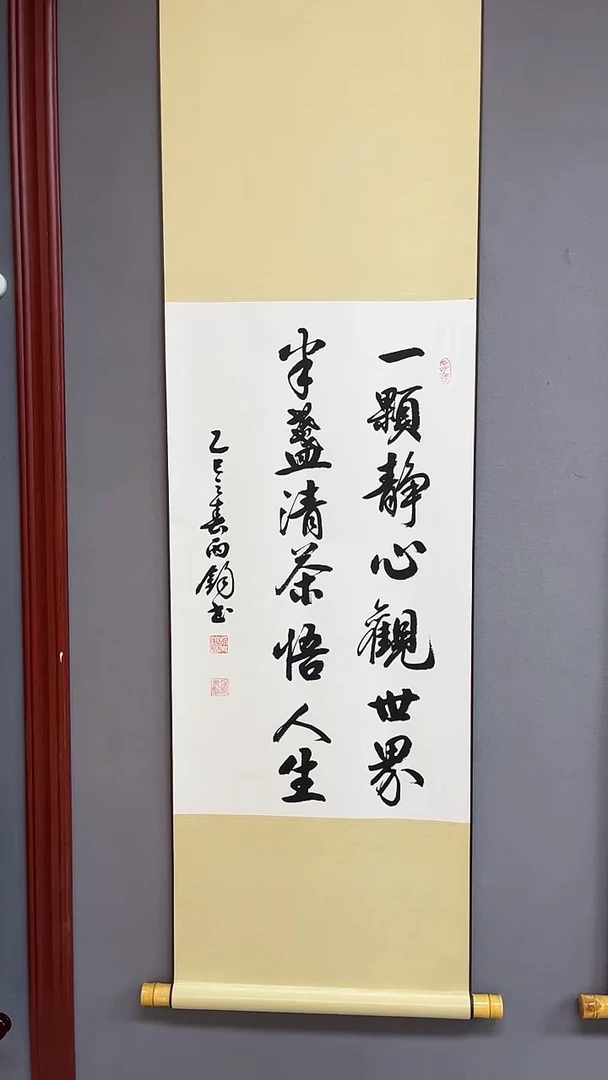 一顆静心觀世界
半盞清茶悟人生
乙巳之春雨鈞书